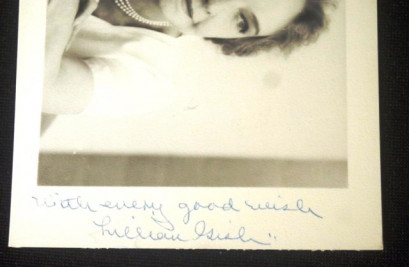 With every good wish
Lillian Gish